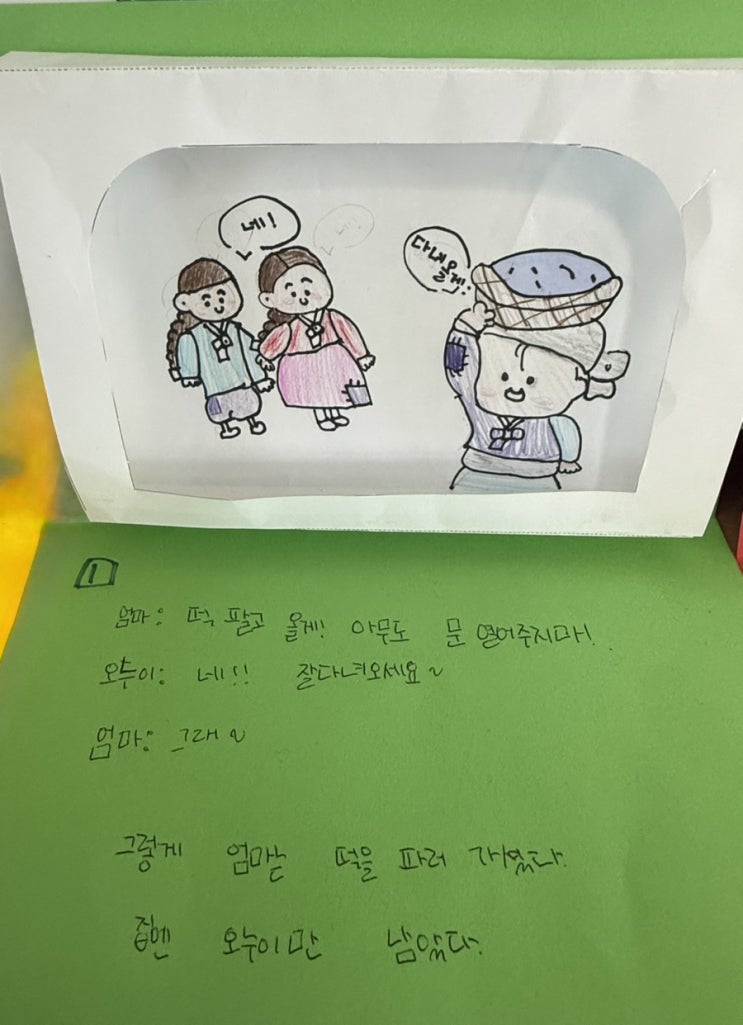 네!
네!
다녀
올게!
1
엄마: 떡 팔고 올게! 아무도 문 열어주지마!
오누이: 네!! 잘다녀오세요~
엄마: 그래~
그렇게 엄마는 떡을 파러 가셨다.
집엔 오누이만 남았다.